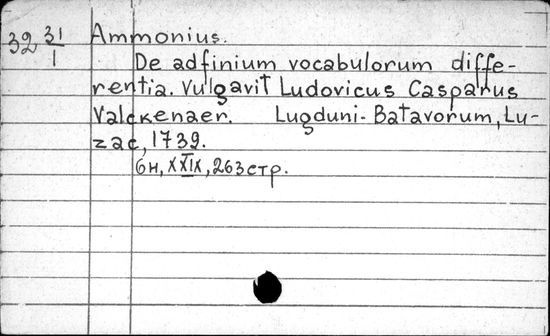 32 31/1
Ammonius.
De adfinium vocabulorum diffe-
rentia. Vulgavit Ludovicus Casparus
Valckenaer. Lugduni-Batavorum, Lu-
zac, 1739.
6н, XXIX, 263 стр.